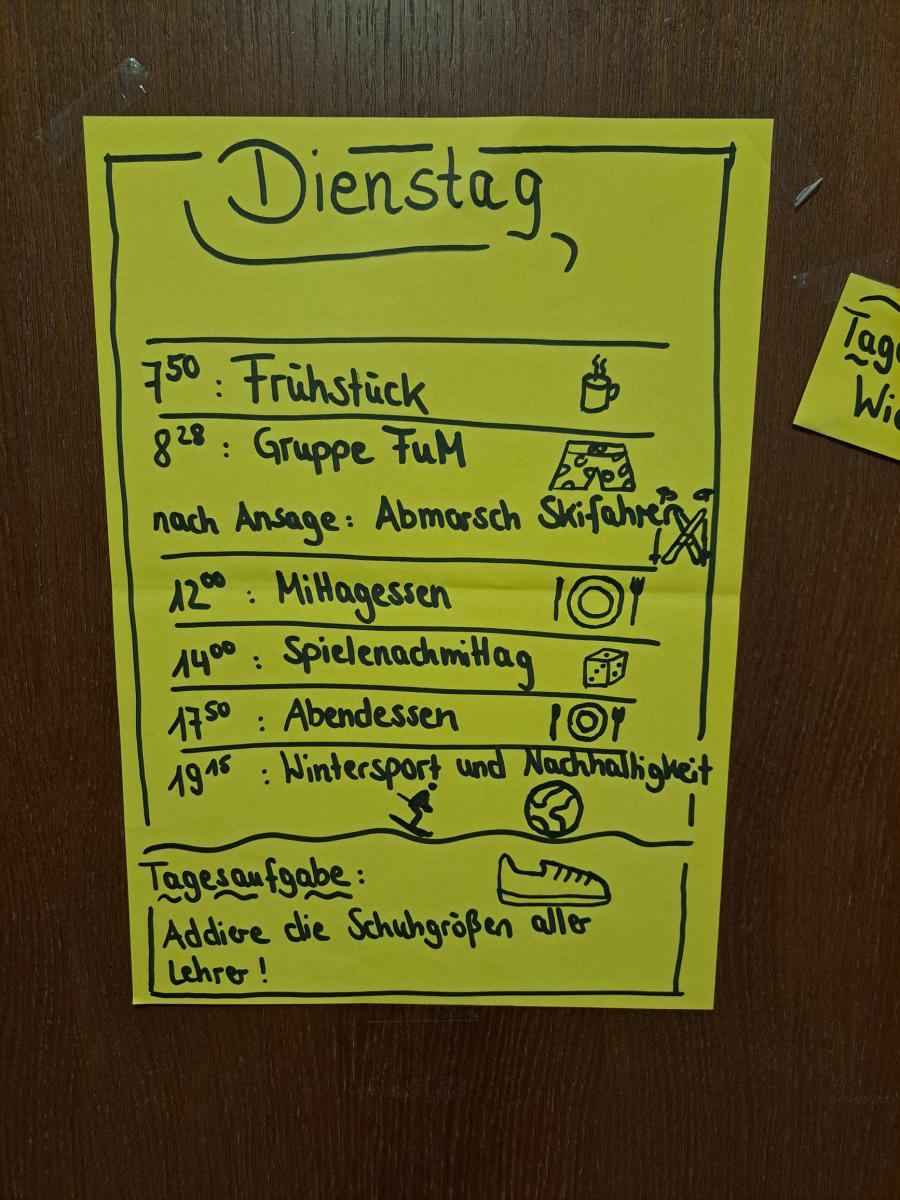 Dienstag
7⁵⁰ : Frühstück
8²⁸ : Gruppe FuM
nach Ansage: Abmarsch Skifahren
12⁰⁰ : Mittagessen
14⁰⁰ : Spielenachmittag
17⁵⁰ : Abendessen
19¹⁵ : Wintersport und Nachhaltigkeit
Tagesaufgabe:
Addiere die Schuhgrößen aller
Lehrer!